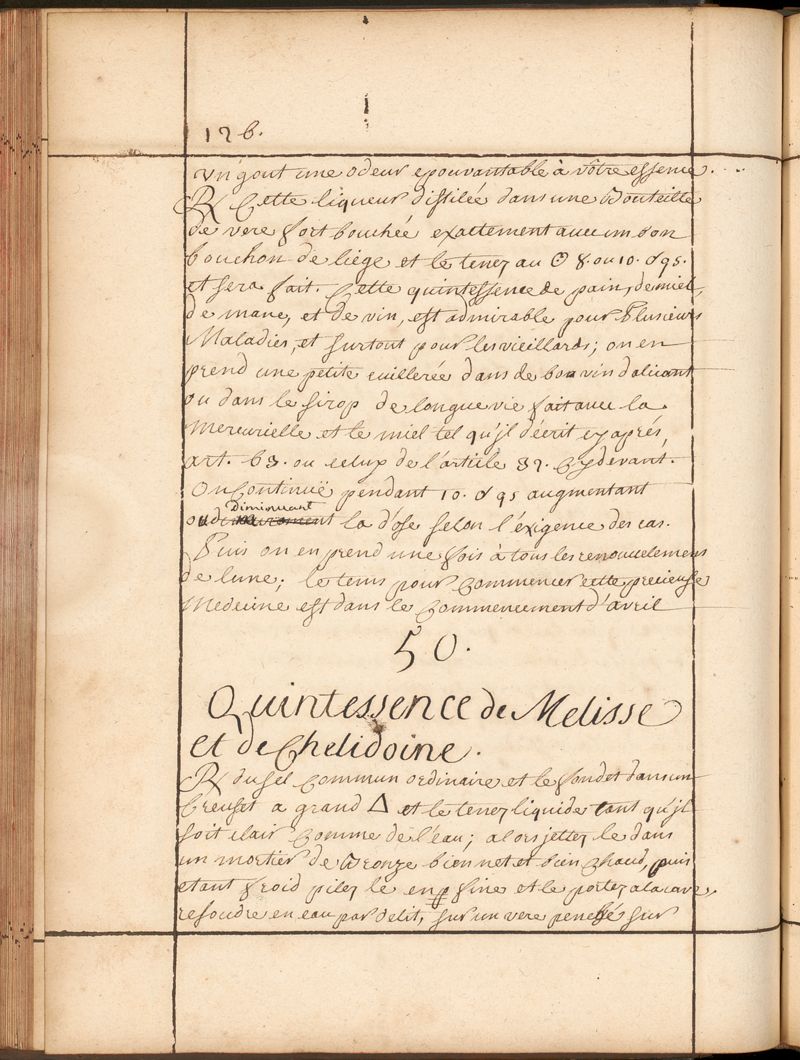 126.
un gout une odeur epouvantable à vôtre essence.
℞ Cette liqueur distilée dans une Bouteille
de vere fort bouchée exactement avec un bon
bouchon de liège et le tenez au ☉ 8. ou 10. j95.
et sera fait. Cette quintessence de pain, de miel,
de mane, et de vin, est admirable pour Plusieurs
Maladies, et surtout pour les vieillards; on en
prend une petite cuillerée dans de bon vin d'alicant
ou dans le sirop de longue vie fait avec la
Mercurielle et le miel tel qu'jl décrit cy après,
art. 63. ou celux de l'article 32. Cydevant.
On Continuë pendant 10. j95 augmentant
Diminuant
ou la d'ose selon l'éxigence des cas.
Puis on en prend une fois à tous les renouvelemens
de lune; le tems pour Commencer cette precieuse
Medecine est dans le Commencement d'avril
50.
Quintessence de Melisse
et de Chelidoine.
℞ du sel Commun ordinaire et le fondet dans un
Creuset a grand △ et le tenez liquide tant qu'jl
soit clair Comme de l'eau; alors jettez le dans
un mortier de Bronze bien net et bien Chaud, puis
etant froid pilez le en p fine et le portez a la cave,
resoudre en eau par delit, sur un vere penché sur